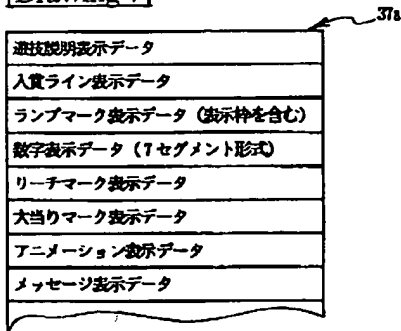 [Drawing 7]
37a
遊技説明表示データ
入賞ライン表示データ
ランプマーク表示データ (表示枠を含む)
数字表示データ (7セグメント形式)
リーチマーク表示データ
大当りマーク表示データ
アニメーション表示データ
メッセージ表示データ